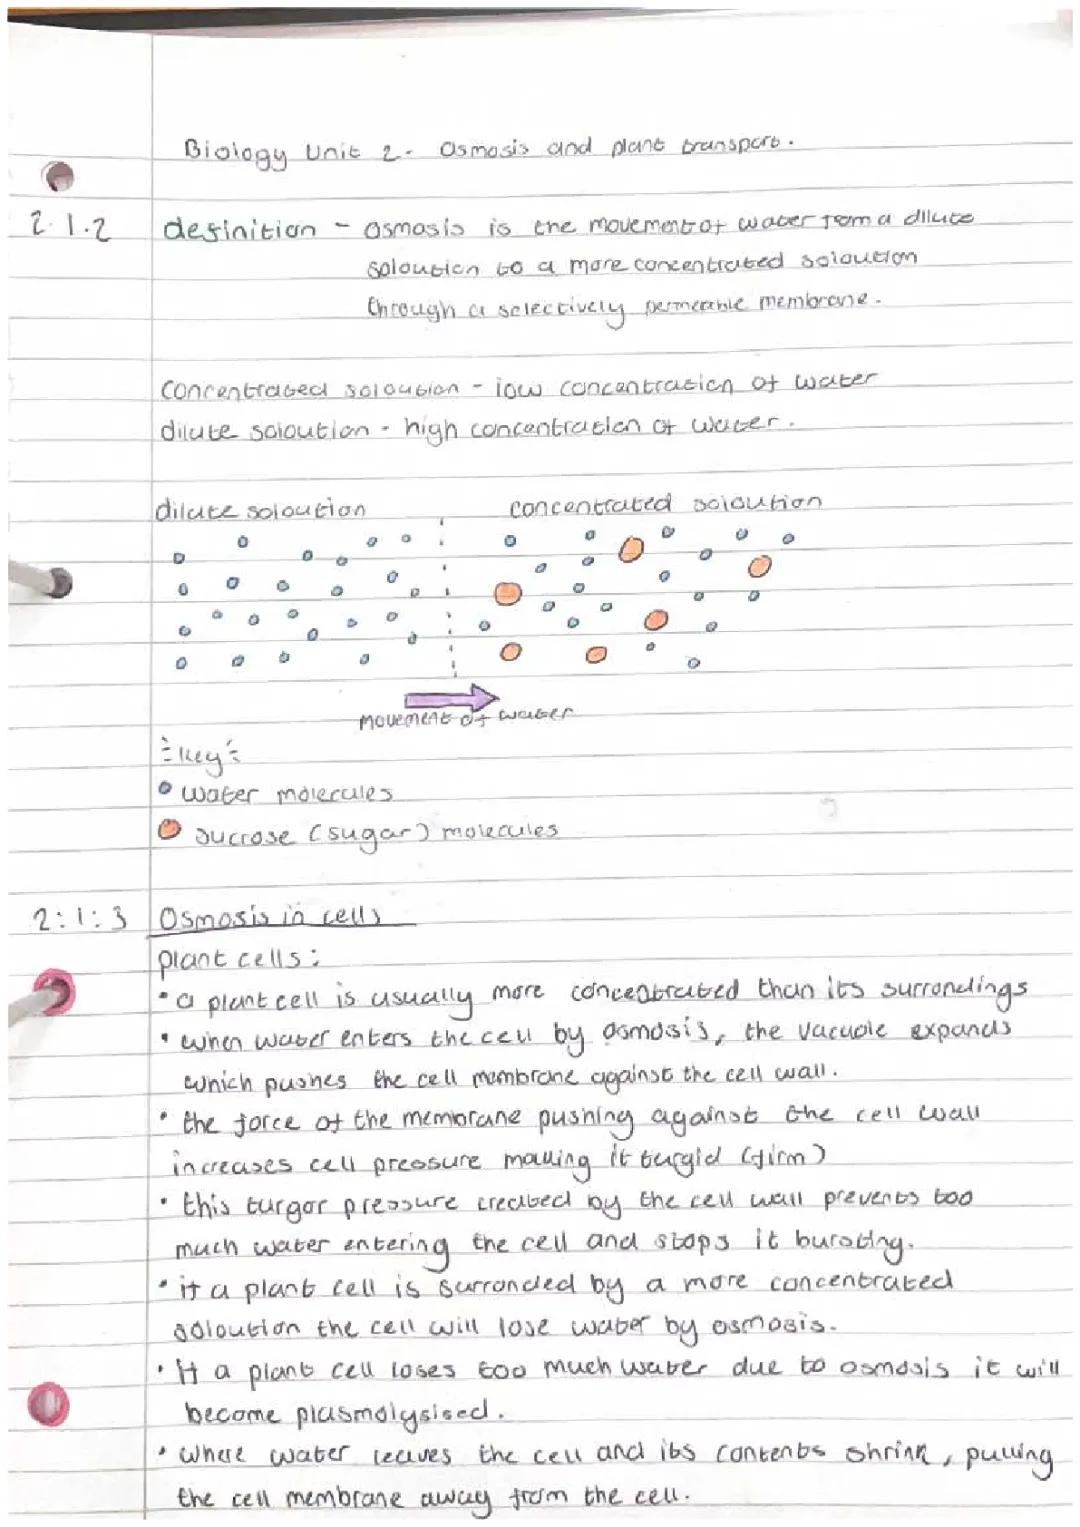 Biology Unit 2 - Osmosis and plant transport.
2.1.2 definition - Osmosis is the movement of water from a dilute
soloution to a more concentrated soloution
through a selectively permeable membrane.
Concentrated soloution - low concentration of water
dilute soloution - high concentration of water.
dilute soloution concentrated soloution
Movement of water
key
water molecules
sucrose (sugar) molecules
2:1:3 Osmosis in cells
plant cells:
• a plant cell is usually more concentrated than its surrondings
• when water enters the cell by osmosis, the vacuole expands
which pushes the cell membrane against the cell wall.
• the force of the membrane pushing against the cell wall
increases cell pressure making it turgid (firm)
• this turgor pressure created by the cell wall prevents too
much water entering the cell and stops it bursting.
• if a plant cell is surronded by a more concentrated
soloution the cell will lose water by osmosis.
• If a plant cell loses too much water due to osmosis it will
become plasmolysised.
• where water leaves the cell and its contents shrink, pulling
the cell membrane away from the cell.